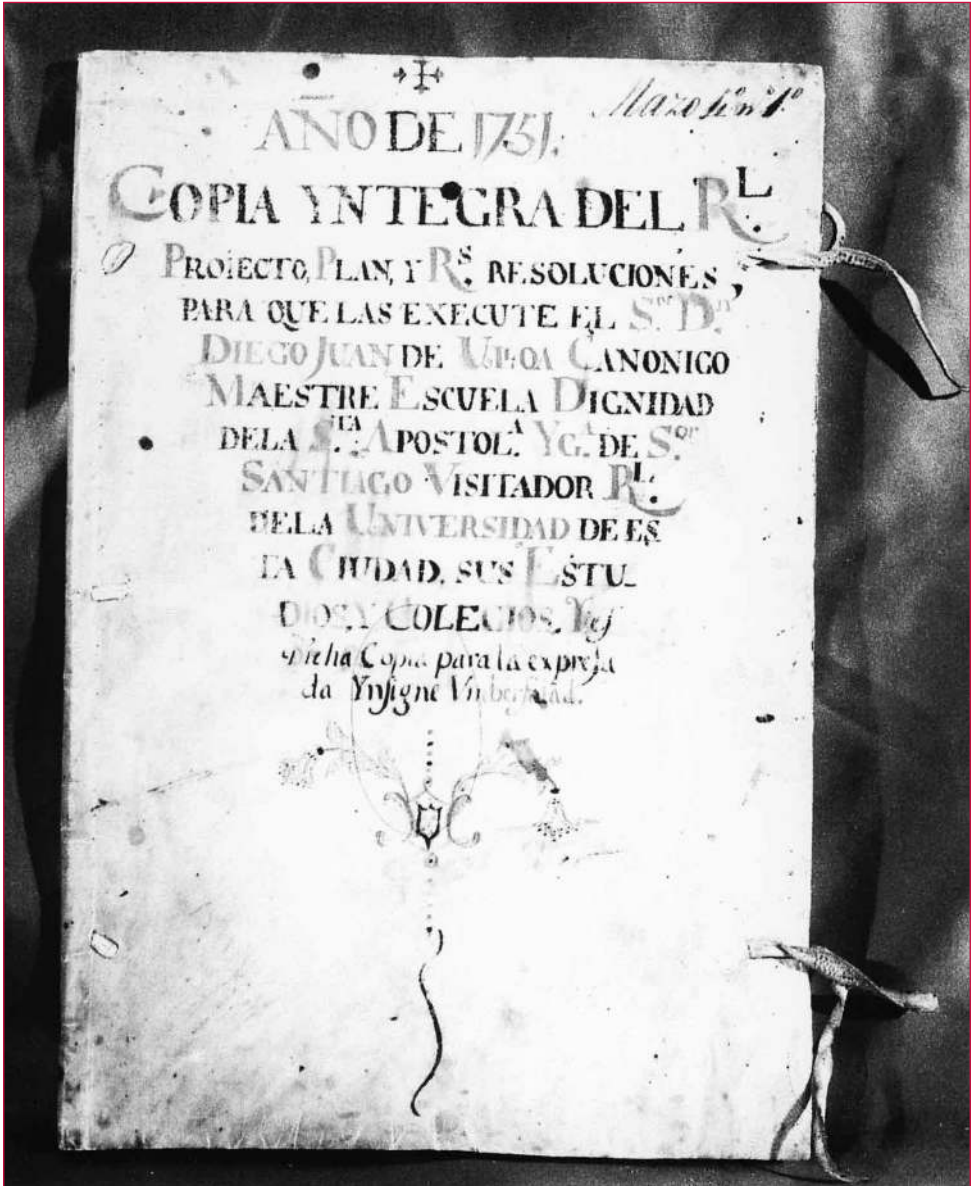 AÑO DE 1751.
COPIA YNTEGRA DEL R.L
PROIECTO, PLAN, Y R.S RESOLUCIONES,
PARA QUE LAS EXECUTE EL S.or D.n
DIEGO JUAN DE ULLOA CANONICO
MAESTRE ESCUELA DIGNIDAD
DELA S.TA APOSTOL.A YG.A DE S.or
SANTIAGO VISITADOR R.L
DELA UNIVERSIDAD DE ES
TA CIUDAD, SUS ESTU-
DIOS, Y COLEGIOS. Y es
Dicha Copia para la expresa
da Ynsigne Vnibersidad.